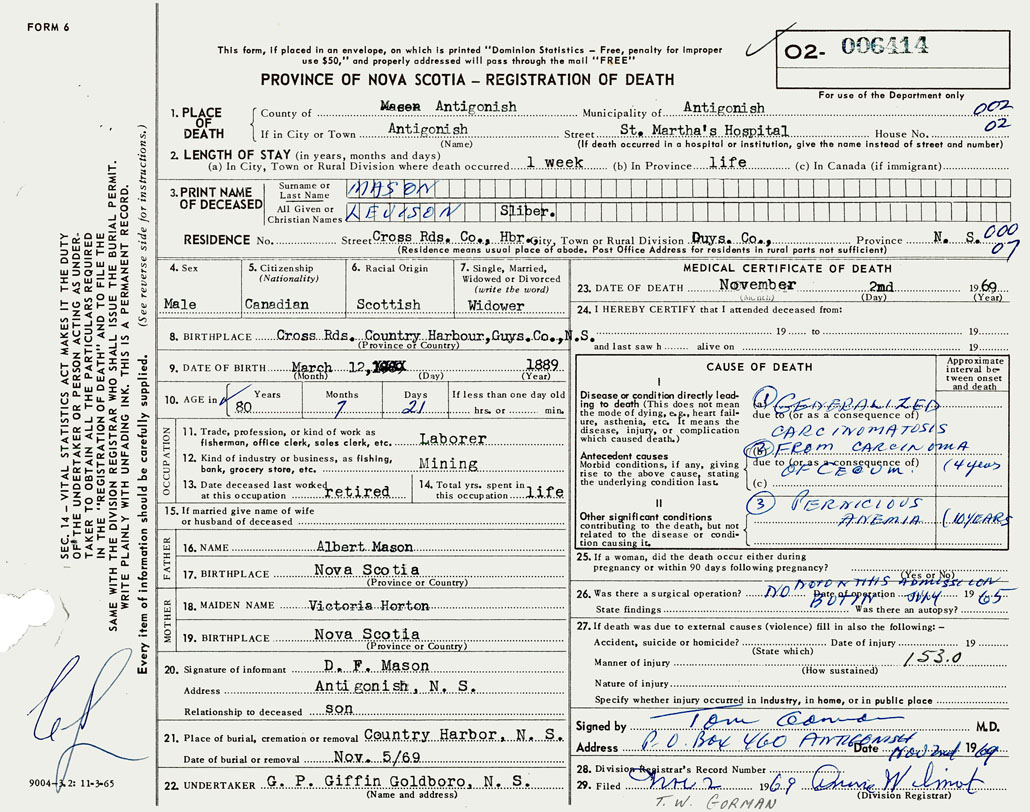 FORM 6
This form, if placed in an envelope, on which is printed "Dominion Statistics – Free, penalty for improper
use $50," and properly addressed will pass through the mail "FREE"
PROVINCE OF NOVA SCOTIA – REGISTRATION OF DEATH
O2- 006414
For use of the Department only
1. PLACE OF DEATH
County of Mason Antigonish Municipality of Antigonish 002
If in City or Town Antigonish Street St. Martha's Hospital House No. 02
(Name) (If death occurred in a hospital or institution, give the name instead of street and number)
2. LENGTH OF STAY (in years, months and days)
(a) In City, Town or Rural Division where death occurred 1 week (b) In Province life (c) In Canada (if immigrant)
3. PRINT NAME OF DECEASED
Surname or Last Name MASON
All Given or Christian Names LEVISON Sliber.
RESIDENCE No. Street Cross Rds. Co., Hbr. City, Town or Rural Division Guys. Co., Province N. S. 000
(Residence means usual place of abode. Post Office Address for residents in rural parts not sufficient) 07
4. Sex
Male
5. Citizenship
(Nationality)
Canadian
6. Racial Origin
Scottish
7. Single, Married,
Widowed or Divorced
(write the word)
Widower
8. BIRTHPLACE Cross Rds. Country Harbour,Guys.Co.,N.S.
(Province or Country)
9. DATE OF BIRTH March 12, 1889
(Month) (Day) (Year)
10. AGE in Years 80 Months 7 Days 21 If less than one day old
hrs. or min.
OCCUPATION
11. Trade, profession or kind of work as
fisherman, office clerk, sales clerk, etc. Laborer
12. Kind of industry or business, as fishing,
bank, grocery store, etc. Mining
13. Date deceased last worked
at this occupation retired
14. Total yrs. spent in
this occupation life
15. If married give name of wife
or husband of deceased
FATHER
16. NAME Albert Mason
17. BIRTHPLACE Nova Scotia
(Province or Country)
MOTHER
18. MAIDEN NAME Victoria Horton
19. BIRTHPLACE Nova Scotia
(Province or Country)
20. Signature of informant D. F. Mason
Address Antigonish, N. S.
Relationship to deceased son
21. Place of burial, cremation or removal Country Harbor, N. S.
Date of burial or removal Nov. 5/69
22. UNDERTAKER G. P. Giffin Goldboro, N. S.
(Name and address)
MEDICAL CERTIFICATE OF DEATH
23. DATE OF DEATH November 2nd 1969
(Month) (Day) (Year)
24. I HEREBY CERTIFY that I attended deceased from:
19 to 19
and last saw h alive on 19
CAUSE OF DEATH
Approximate
interval be-
tween onset
and death
I
Disease or condition directly lead-
ing to death (This does not mean
the mode of dying, e.g., heart fail-
ure, asthenia, etc. It means the
disease, injury, or complication
which caused death.)
(a) 1 GENERALIZED
due to (or as a consequence of)
CARCINOMATOSIS
Antecedent causes
Morbid conditions, if any, giving
rise to the above cause, stating
the underlying condition last.
(b) 2 FROM CARCINOMA
due to (or as a consequence of)
OF CECUM. (4 years
(c)
II
Other significant conditions
contributing to the death, but not
related to the disease or condi-
tion causing it.
3 PERNICIOUS
ANEMIA (10 YEARS
25. If a woman, did the death occur either during
pregnancy or within 90 days following pregnancy?
(Yes or No)
26. Was there a surgical operation? NO NOT ON THIS ADMISSION
Date of operation BUT IN JULY 1965
State findings Was there an autopsy?
27. If death was due to external causes (violence) fill in also the following: –
Accident, suicide or homicide? Date of injury 19
(State which)
Manner of injury 153.0
(How sustained)
Nature of injury
Specify whether injury occurred in industry, in home, or in public place
Signed by Tom Gorman M.D.
Address P.O. Box 460 ANTIGONISH Date Nov 2nd 1969
28. Division Registrar's Record Number
29. Filed Nov 2 1969 Wilmot
(Division Registrar)
T.W. GORMAN
SEC. 14 – VITAL STATISTICS ACT MAKES IT THE DUTY
OF THE UNDERTAKER OR PERSON ACTING AS UNDER-
TAKER TO OBTAIN ALL THE PARTICULARS REQUIRED
IN THE "REGISTRATION OF DEATH" AND TO FILE THE
SAME WITH THE DIVISION REGISTRAR WHO SHALL ISSUE THE BURIAL PERMIT.
WRITE PLAINLY WITH UNFADING INK. THIS IS A PERMANENT RECORD.
Every item of information should be carefully supplied. (See reverse side for instructions.)
9004-3.2: 11-3-65